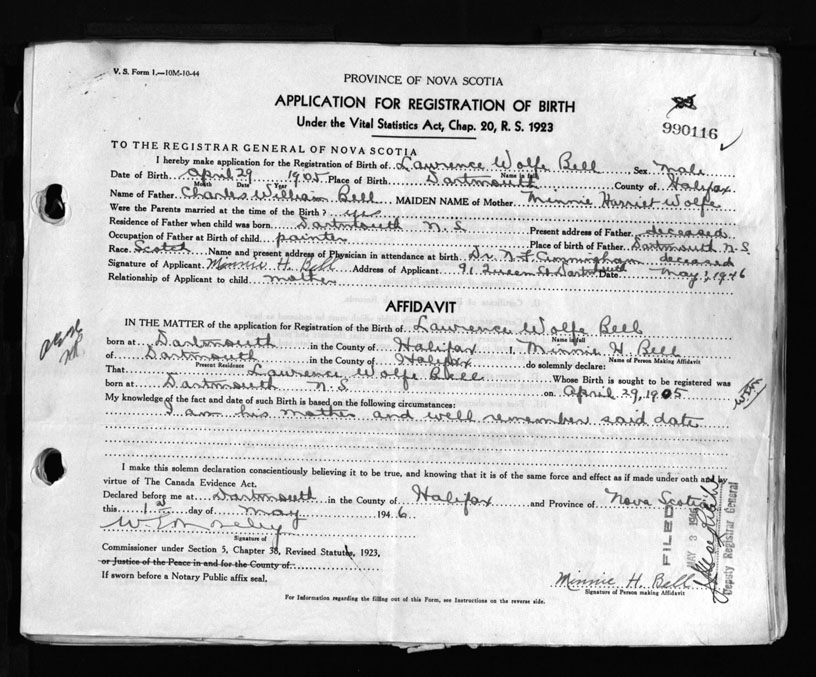 V. S. Form 1.—10M-10-44
PROVINCE OF NOVA SCOTIA
APPLICATION FOR REGISTRATION OF BIRTH
Under the Vital Statistics Act, Chap. 20, R. S. 1923
990116
TO THE REGISTRAR GENERAL OF NOVA SCOTIA
I hereby make application for the Registration of Birth of Lawrence Wolfe Bell Sex Male
Name in full
Date of Birth April 29 1905 Place of Birth Dartmouth County of Halifax
Month Date Year
Name of Father Charles William Bell MAIDEN NAME of Mother Minnie Harriet Wolfe
Were the Parents married at the time of the Birth? yes
Residence of Father when child was born Dartmouth N. S. Present address of Father deceased
Occupation of Father at Birth of child painter Place of birth of Father Dartmouth N. S.
Race Scotch Name and present address of Physician in attendance at birth Dr. Cunningham deceased
Signature of Applicant Minnie H. Bell Address of Applicant 91 Queen St Dartmouth Date May 1, 1946
Relationship of Applicant to child mother
AFFIDAVIT
IN THE MATTER of the application for Registration of the Birth of Lawrence Wolfe Bell
Name in full
born at Dartmouth in the County of Halifax I, Minnie H. Bell
Name of Person Making Affidavit
of Dartmouth in the County of Halifax do solemnly declare:
Present Residence
That Lawrence Wolfe Bell Whose Birth is sought to be registered was
born at Dartmouth N. S. on April 29, 1905
My knowledge of the fact and date of such Birth is based on the following circumstances:
I am his mother and well remember said date
I make this solemn declaration conscientiously believing it to be true, and knowing that it is of the same force and effect as if made under oath and by
virtue of The Canada Evidence Act.
Declared before me at Dartmouth in the County of Halifax and Province of Nova Scotia
this 1st day of May 1946
Signature of
Commissioner under Section 5, Chapter 38, Revised Statutes, 1923,
or Justice of the Peace in and for the County of
If sworn before a Notary Public affix seal.
Minnie H. Bell
Signature of Person making Affidavit
For Information regarding the filling out of this Form, see Instructions on the reverse side.
FILED
MAY 3 1946
Deputy Registrar General